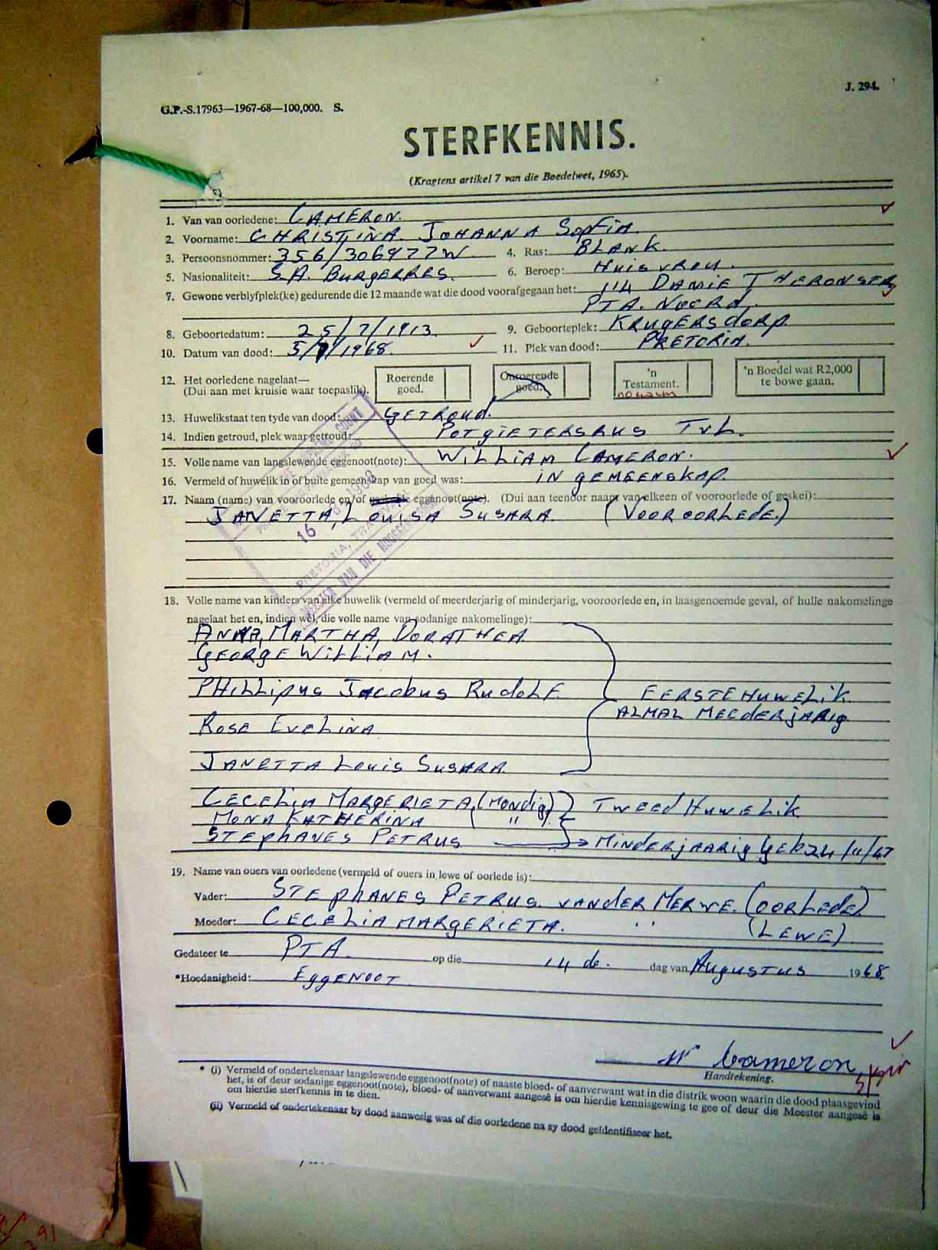 J. 294.
G.P.-S.17963—1967-68—100,000. S.
STERFKENNIS.
(Kragtens artikel 7 van die Boedelwet, 1965).
1. Van van oorledene: CAMERON.
2. Voorname: CHRISTINA JOHANNA SOPFIA
3. Persoonsnommer: 356/306977W 4. Ras: BLANK.
5. Nasionaliteit: S.A. BURGERRES. 6. Beroep: HUISVROU.
7. Gewone verblyfplek(ke) gedurende die 12 maande wat die dood voorafgegaan het: 114 DANIE THERONSTR
PTA. NOORD.
8. Geboortedatum: 25/7/1913. 9. Geboorteplek: KRUGERSDORP.
10. Datum van dood: 5/ /1968. 11. Plek van dood: PRETORIA.
12. Het oorledene nagelaat—
(Dui aan met kruisie waar toepaslik).
Roerende goed.
Onroerende goed.
'n Testament.
'n Boedel wat R2,000 te bowe gaan.
13. Huwelikstaat ten tyde van dood: GETROUD.
14. Indien getroud, plek waar getroud: POTGIETERSRUS TVL.
15. Volle name van langslewende eggenoot(note): WILLIAM CAMERON.
16. Vermeld of huwelik in of buite gemeenskap van goed was: IN GEMEENSKAP.
17. Naam (name) van vooroorlede en/of eggenoot(note). (Dui aan teenoor naam van elkeen of vooroorlede of geskei):
JANETTA, LOUISA SUSARA. (VOOROORLEDE.)
16 1968
18. Volle name van kinders van elke huwelik (vermeld of meerderjarig of minderjarig, vooroorlede en, in laasgenoemde geval, of hulle nakomelinge
nagelaat het en, indien wel, die volle name van sodanige nakomelinge):
ANNA, MARTHA, DORATHEA
GEORGE WILLIAM.
PHILLIPUS JACOBUS RUDOLF
EERSTE HUWELIK
ALMAL MEEDERJARIG
ROSE EVELINA
JANETTA LOUIS SUSARA.
CECELIA MARGERIETA, (MONDIG) TWEED HUWELIK
MONA KATHERINA ( " )
STEPHANES PETRUS MINDERJAARIG GEB 24/11/47
19. Name van ouers van oorledene (vermeld of ouers in lewe of oorlede is):
Vader: STEPHANES PETRUS VANDER MERWE. (OORLEDE)
Moeder: CECELIA MARGERIETA. " (LEWE).
Gedateer te PTA. op die 14 de. dag van AUGUSTUS 1968
*Hoedanigheid: EGGENOOT
W Cameron
Handtekening.
* (i) Vermeld of ondertekenaar langslewende eggenoot(note) of naaste bloed- of aanverwant wat in die distrik woon waarin die dood plaasgevind
het, is of deur sodanige eggenoot(note), bloed- of aanverwant aangesê is om hierdie kennisgewing te gee of deur die Meester aangesê is
om hierdie sterfkennis in te dien.
(ii) Vermeld of ondertekenaar by dood aanwesig was of die oorledene na sy dood geïdentifiseer het.